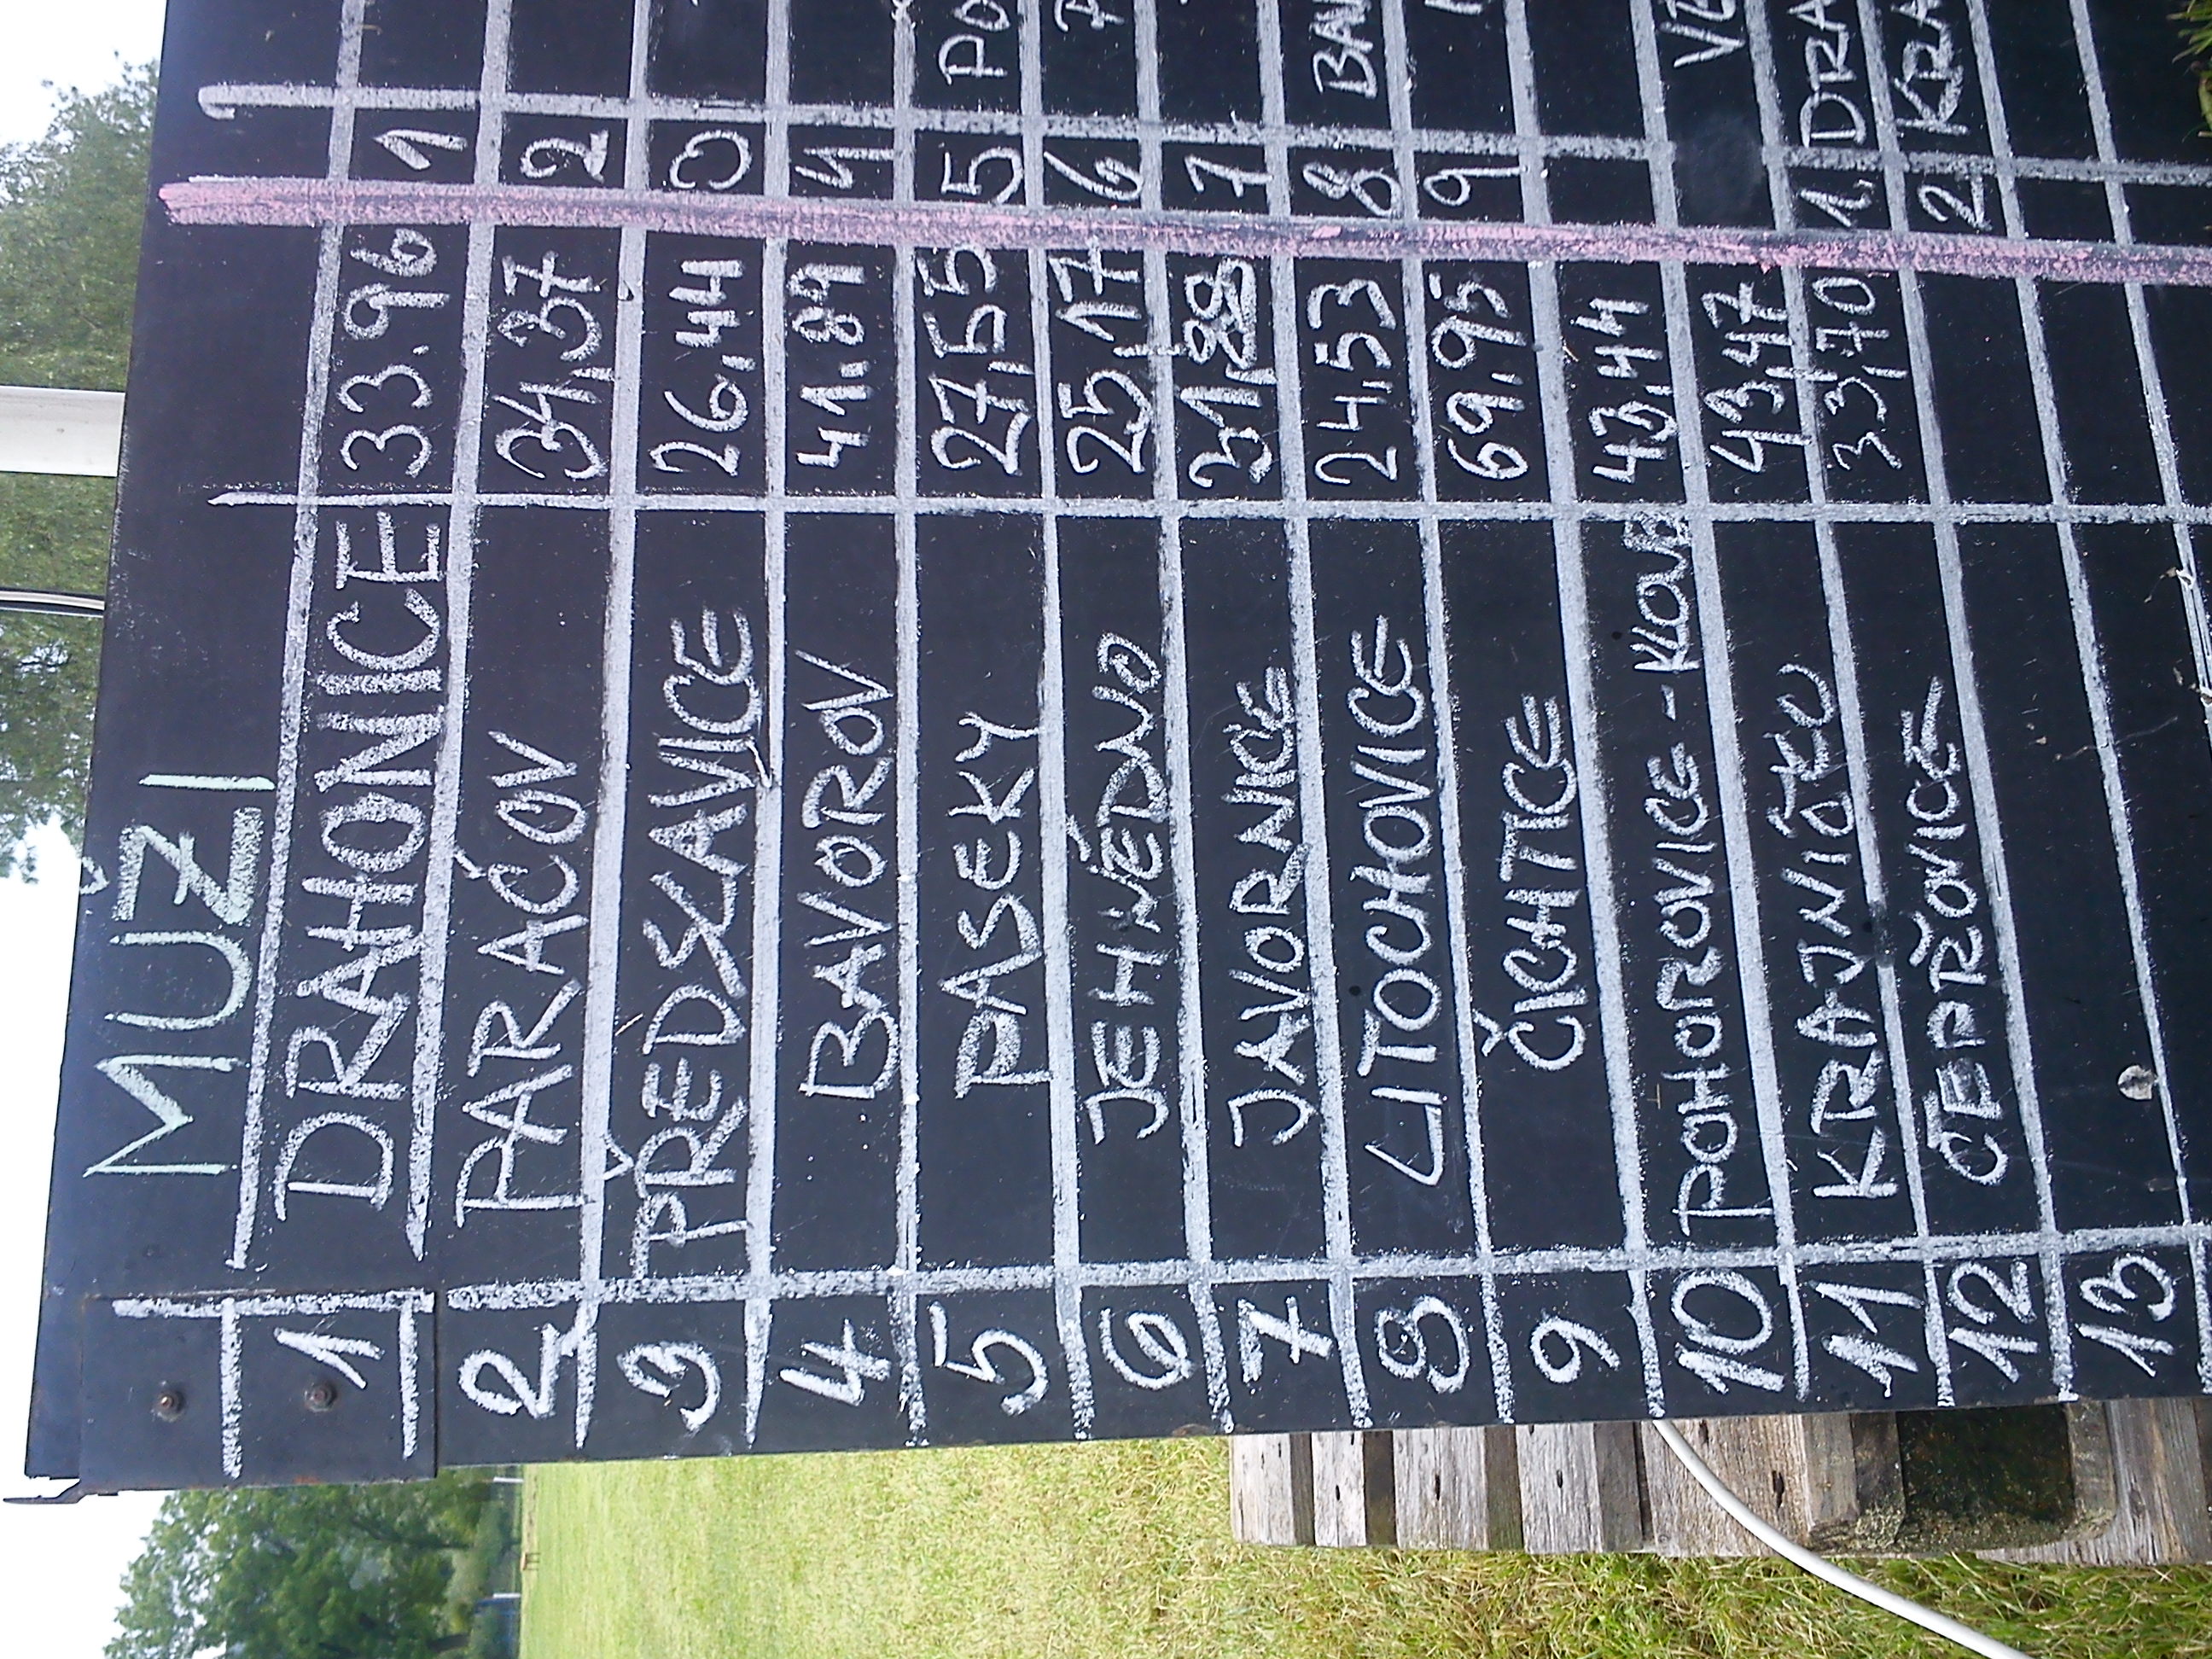 MUŽI
1 DRAHONICE 33.96 1
2 PARAČOV 34,37 2
3 PŘEDSLAVICE 26,44 3
4 BAVOROV 41.89 4
5 PASEKY 27,55 5 PO
6 JEHNĚDNO 25,17 6
7 JAVORNICE 31,88 7
8 LITOCHOVICE 24,53 8 BAV
9 ČICHTICE 69,95 9
10 POHOROVICE - KLOUB 43,44
11 KRAJNIČKO 43,47 VE
12 ČEPŘOVICE 33,70 1. DRA
13 2 KRA